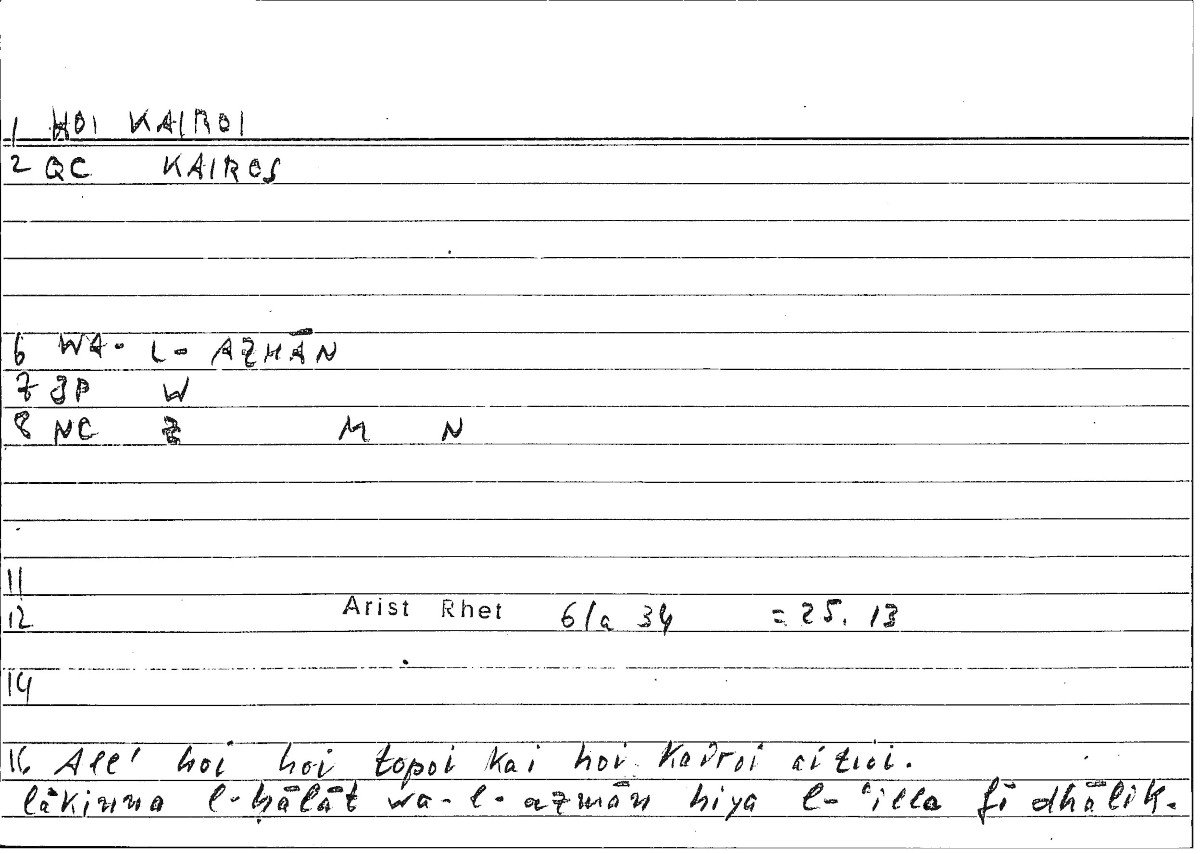 1 HOI KAIROI
2 QC KAIROS
6 WA- L- AZMĀN
7 3P W
8 NC Z M N
11
12 Arist Rhet 61a 34 = 25. 13
14
16 All' hoi hoi topoi kai hoi kairoi aitioi.
lākinna l-ḥālāt wa-l-azmān hiya l-ʿilla fī dhālik.